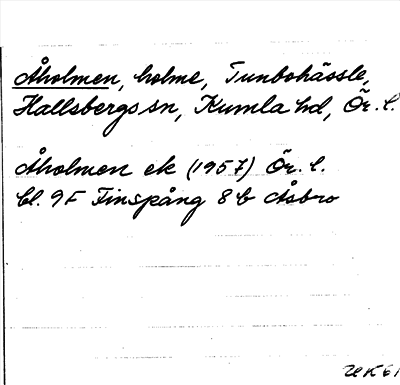 Åholmen, holme, Tunbohässle,
Hallsbergs sn, Kumla hd, Ör. l.
Åholmen ek (1957) Ör. l.
bl. 9F Finspång 8b Åsbro
UK 61